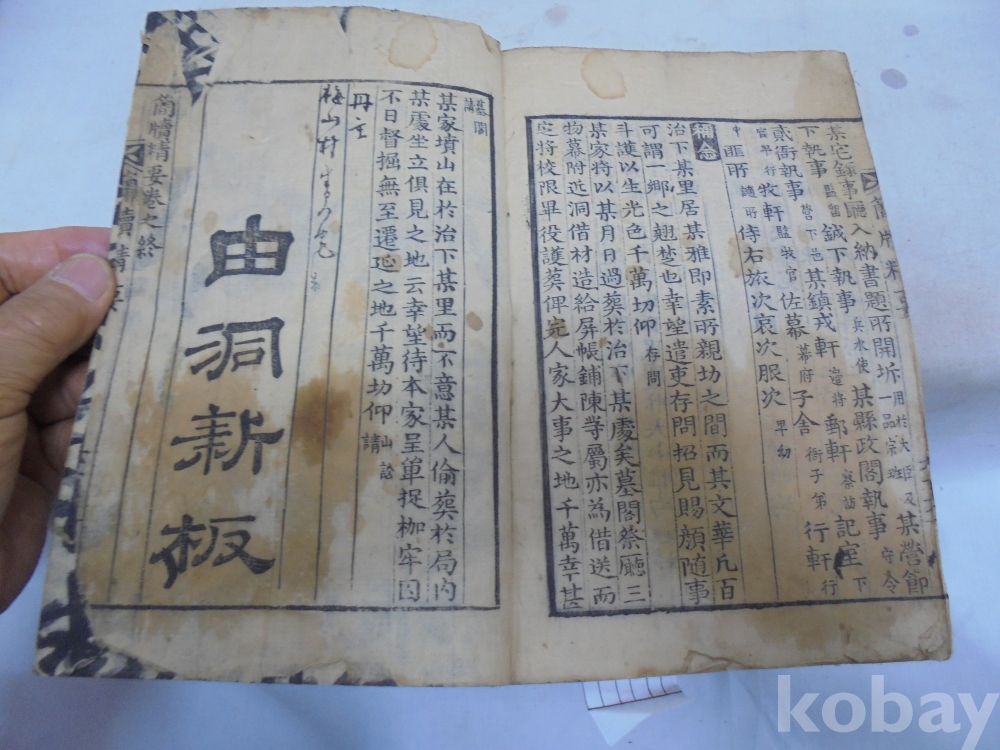 某宅錄事廳入納書題所開坼用於大臣及一品宗班某營節
下執事監留鉞下執事兵水使某縣政閣執事守令
貳衙執事營下邑某鎭戎軒邊將郵軒察訪記室下行
官卑行牧軒監牧官佐幕幕府子舍衙子弟行軒
中匪所謫所侍右旅次哀次服次卑幼
稱念
治下某里居某雅即素所親切之間而其文華凡百
可謂一鄉之翹楚也幸望遣吏存問招見賜顔隨事
斗護以生光色千萬切仰存問
某家將以某月日過葬於治下某處矣墓閣祭廳三
物幕附近洞借材造給屛帳鋪陳等屬亦為借送而
定將校限畢役護葬俾完人家大事之地千萬幸甚
墓閣請
某家墳山在於治下某里而不意某人偷葬於局內
某處坐立俱見之地云幸望待本家呈單捉枷牢囚
不日督掘無至遷延之地千萬切仰山訟請
梅山村
由洞新板
簡牘精要卷之終
kobay